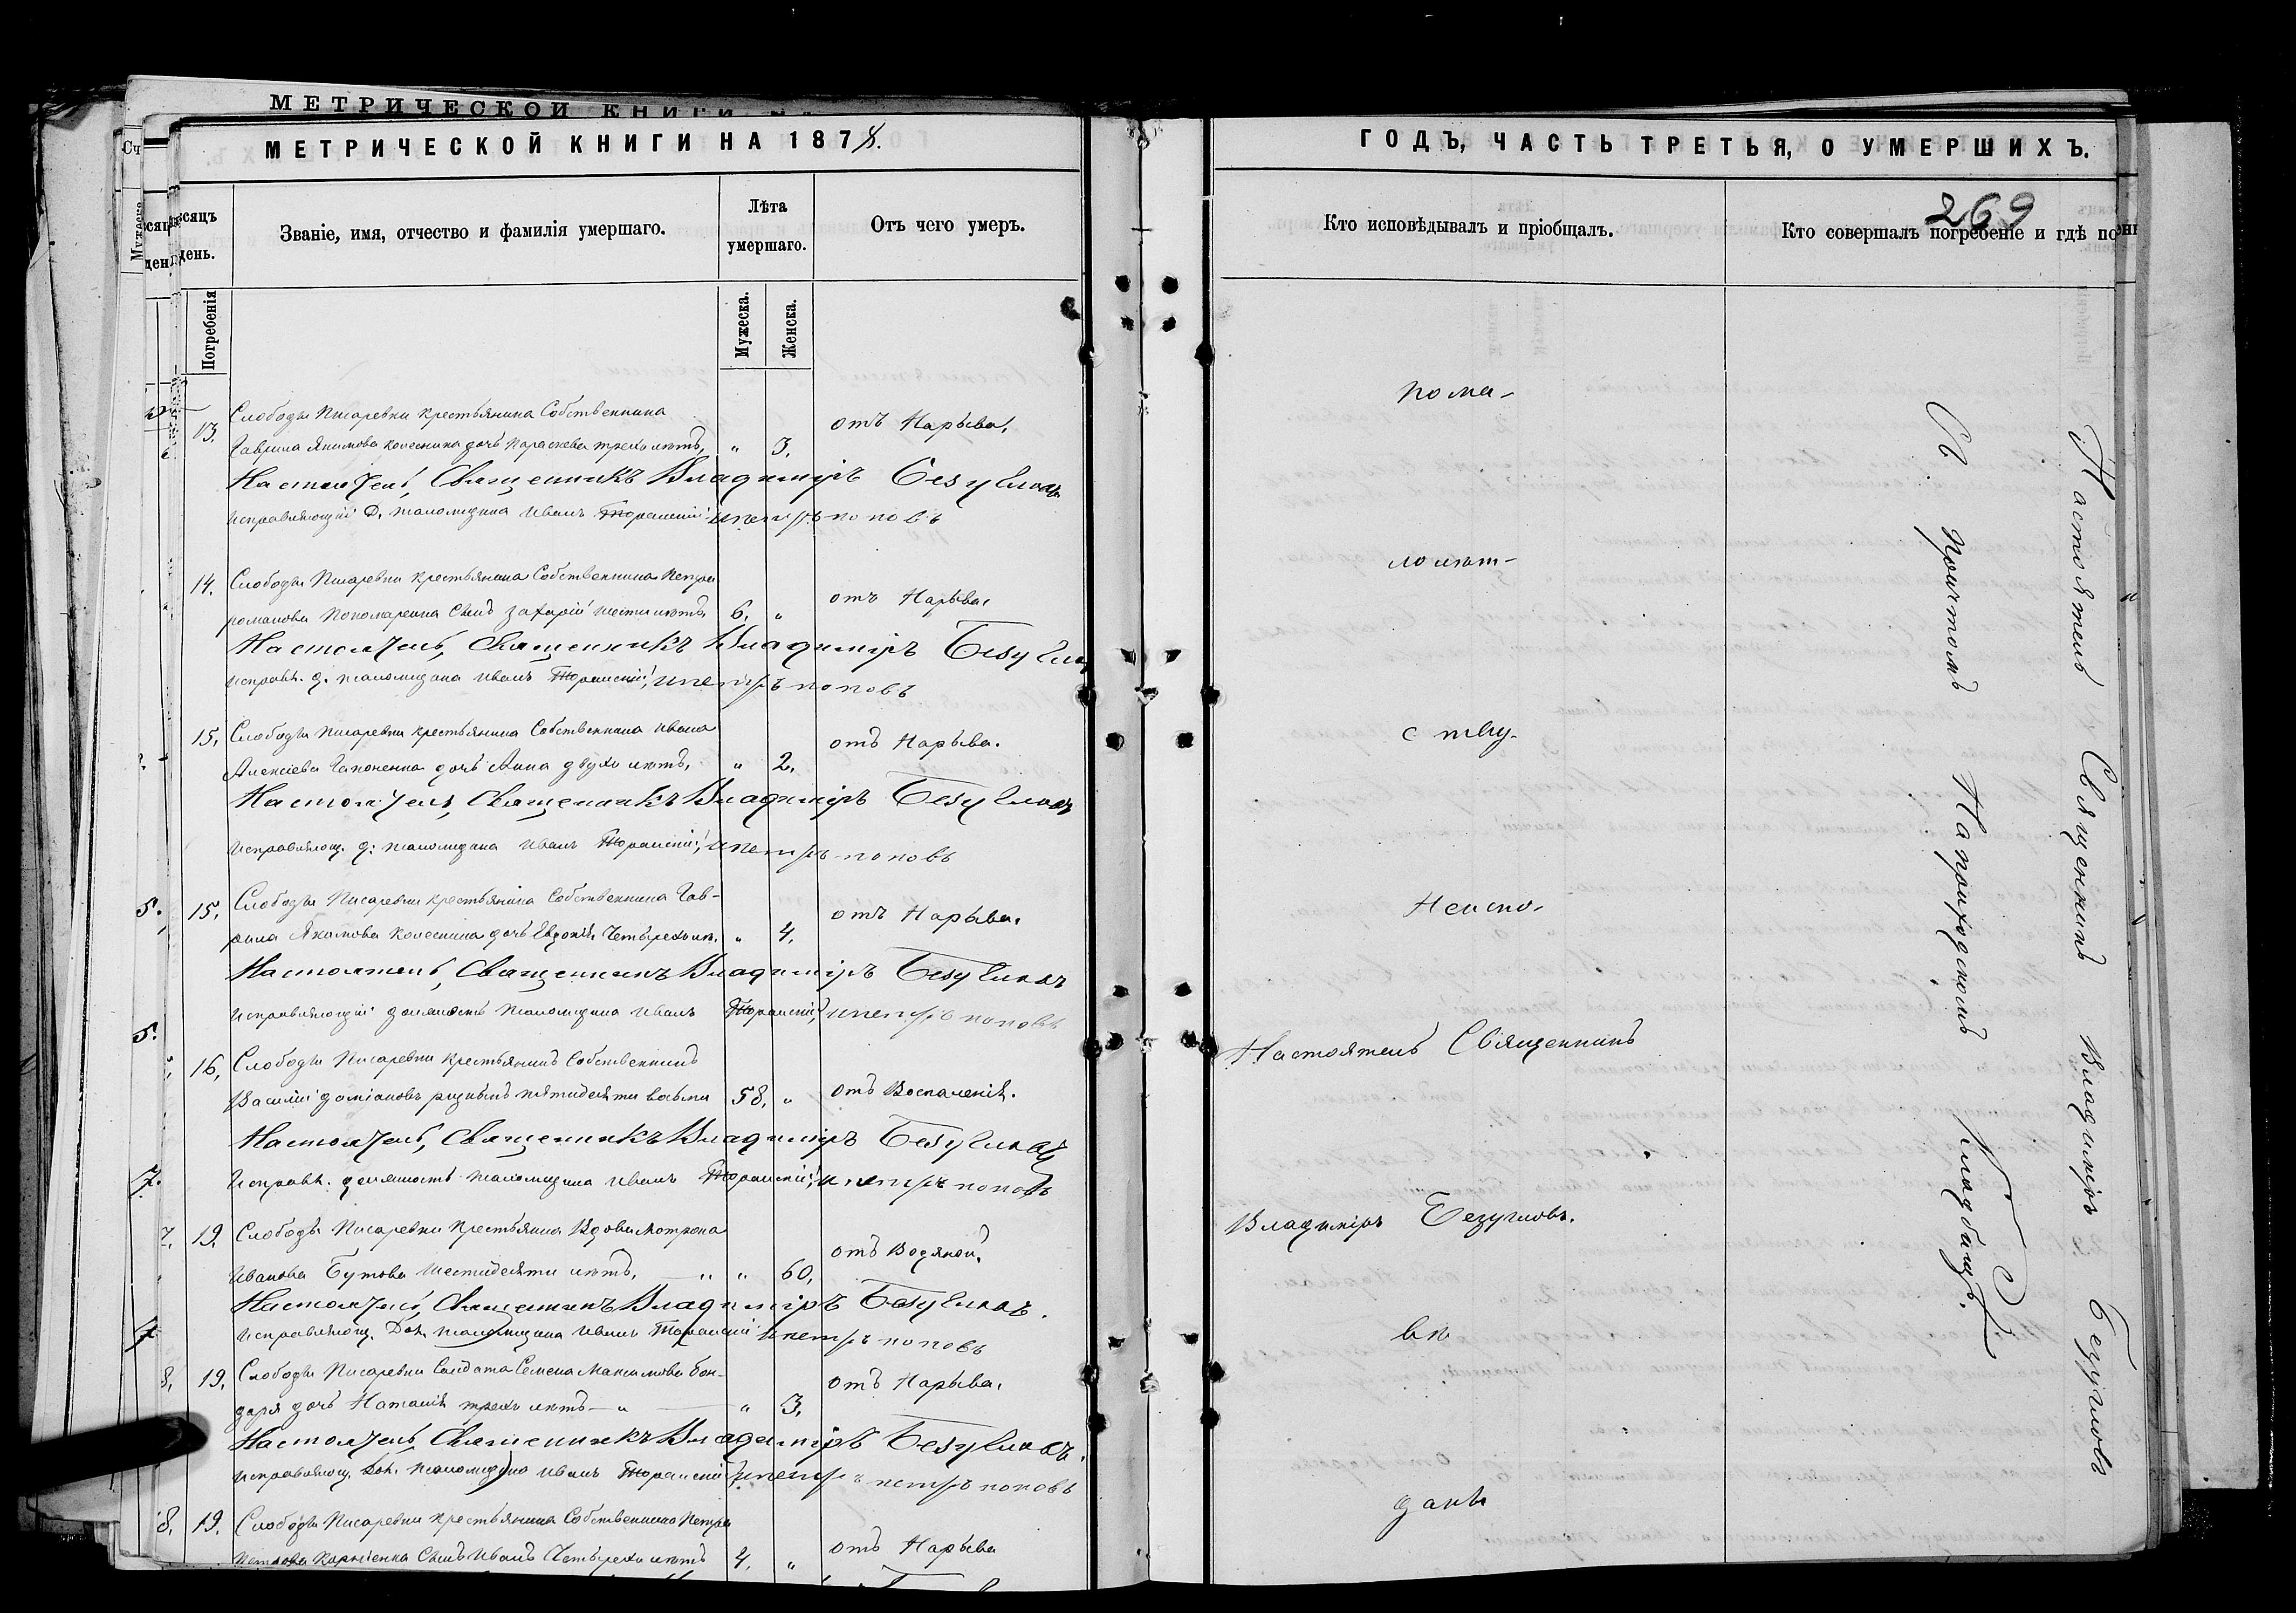 МЕТРИЧЕСКОЙ КНИГИ
МЕТРИЧЕСКОЙ КНИГИ НА 1878.
ГОДЪ, ЧАСТЬ ТРЕТЬЯ, О УМЕРШИХЪ.
269
Сч
Мужеска
сяцъ
день.
Погребенія
Званіе, имя, отчество и фамилія умершаго.
Лѣта
умершаго.
Мужеска.
Женска.
Отъ чего умеръ.
Кто исповѣдывалъ и пріобщалъ.
Кто совершалъ погребеніе и гдѣ по
13. Слободы Писаревки крестьянина Собственника
Гаврила Якимова Колесника дочь Параскева трехъ лѣтъ, „ 3. отъ Нарыва.
Настоятель, Священникъ Владиміръ Безугловъ
Исправляющій д. псаломщика Иванъ и петръ поповъ
14. Слободы Писаревки крестьянина Собственника Петра
романова Пономаренка Сынъ Захарій шести лѣтъ 6. „ отъ Нарыва.
Настоятель, Священникъ Владиміръ Безугловъ
исправл. д. псаломщика Иванъ и петръ поповъ
15. Слободы Писаревки крестьянина Собственника Ивана
Алексіева Гапоненка дочь Анна двухъ лѣтъ, „ 2. отъ Нарыва.
Настоятель, Священникъ Владиміръ Безугловъ
Исправляющ. д: псаломщика Иванъ и петръ поповъ
5. 15. Слободы Писаревки крестьянина Собственника Гав-
рила Якимова Колесника дочь Евдокія Четырехъ лѣ. „ 4. отъ Нарыва.
Настоятель, Священникъ Владиміръ Безугловъ
Исправляющій должность псаломщика Иванъ и петръ поповъ
5.
16. Слободы Писаревки крестьянинъ Собственникъ
Василій даміановъ пятидесяти восьми 58. „ отъ Воспаленія.
Настоятель, Священникъ Владиміръ Безугловъ
Исправл. должность псаломщика Иванъ и петръ поповъ
7.
7. 19. Слободы Писаревки крестьянина Вдова Мотрона
Иванова Бутова шестидесяти лѣтъ, „ „ 60. отъ Водяной.
Настоятель, Священникъ Владиміръ Безугловъ.
Исправляющ. Дол. псаломщика Иванъ и петръ поповъ
8. 19. Слободы Писаревки Солдата Семена Максимова бон-
даря дочь Наталія трехъ лѣтъ „ „ 3. отъ Нарыва.
Настоятель, Священникъ Владиміръ Безугловъ.
Исправляющ. дол. псаломщика Иванъ петръ поповъ
8. 19. Слободы Писаревки крестьянина Собственника Петра
Корніенка Сынъ Иванъ Четырехъ лѣтъ 4. „ отъ Нарыва
пома-
лолѣт-
ству.
Неиспо-
Настоятель Священникъ
Владиміръ Безугловъ.
вѣ
даны
Съ Причтомъ На приходскомъ Кладбищѣ.
Настоятель Священникъ Владиміръ Безугловъ